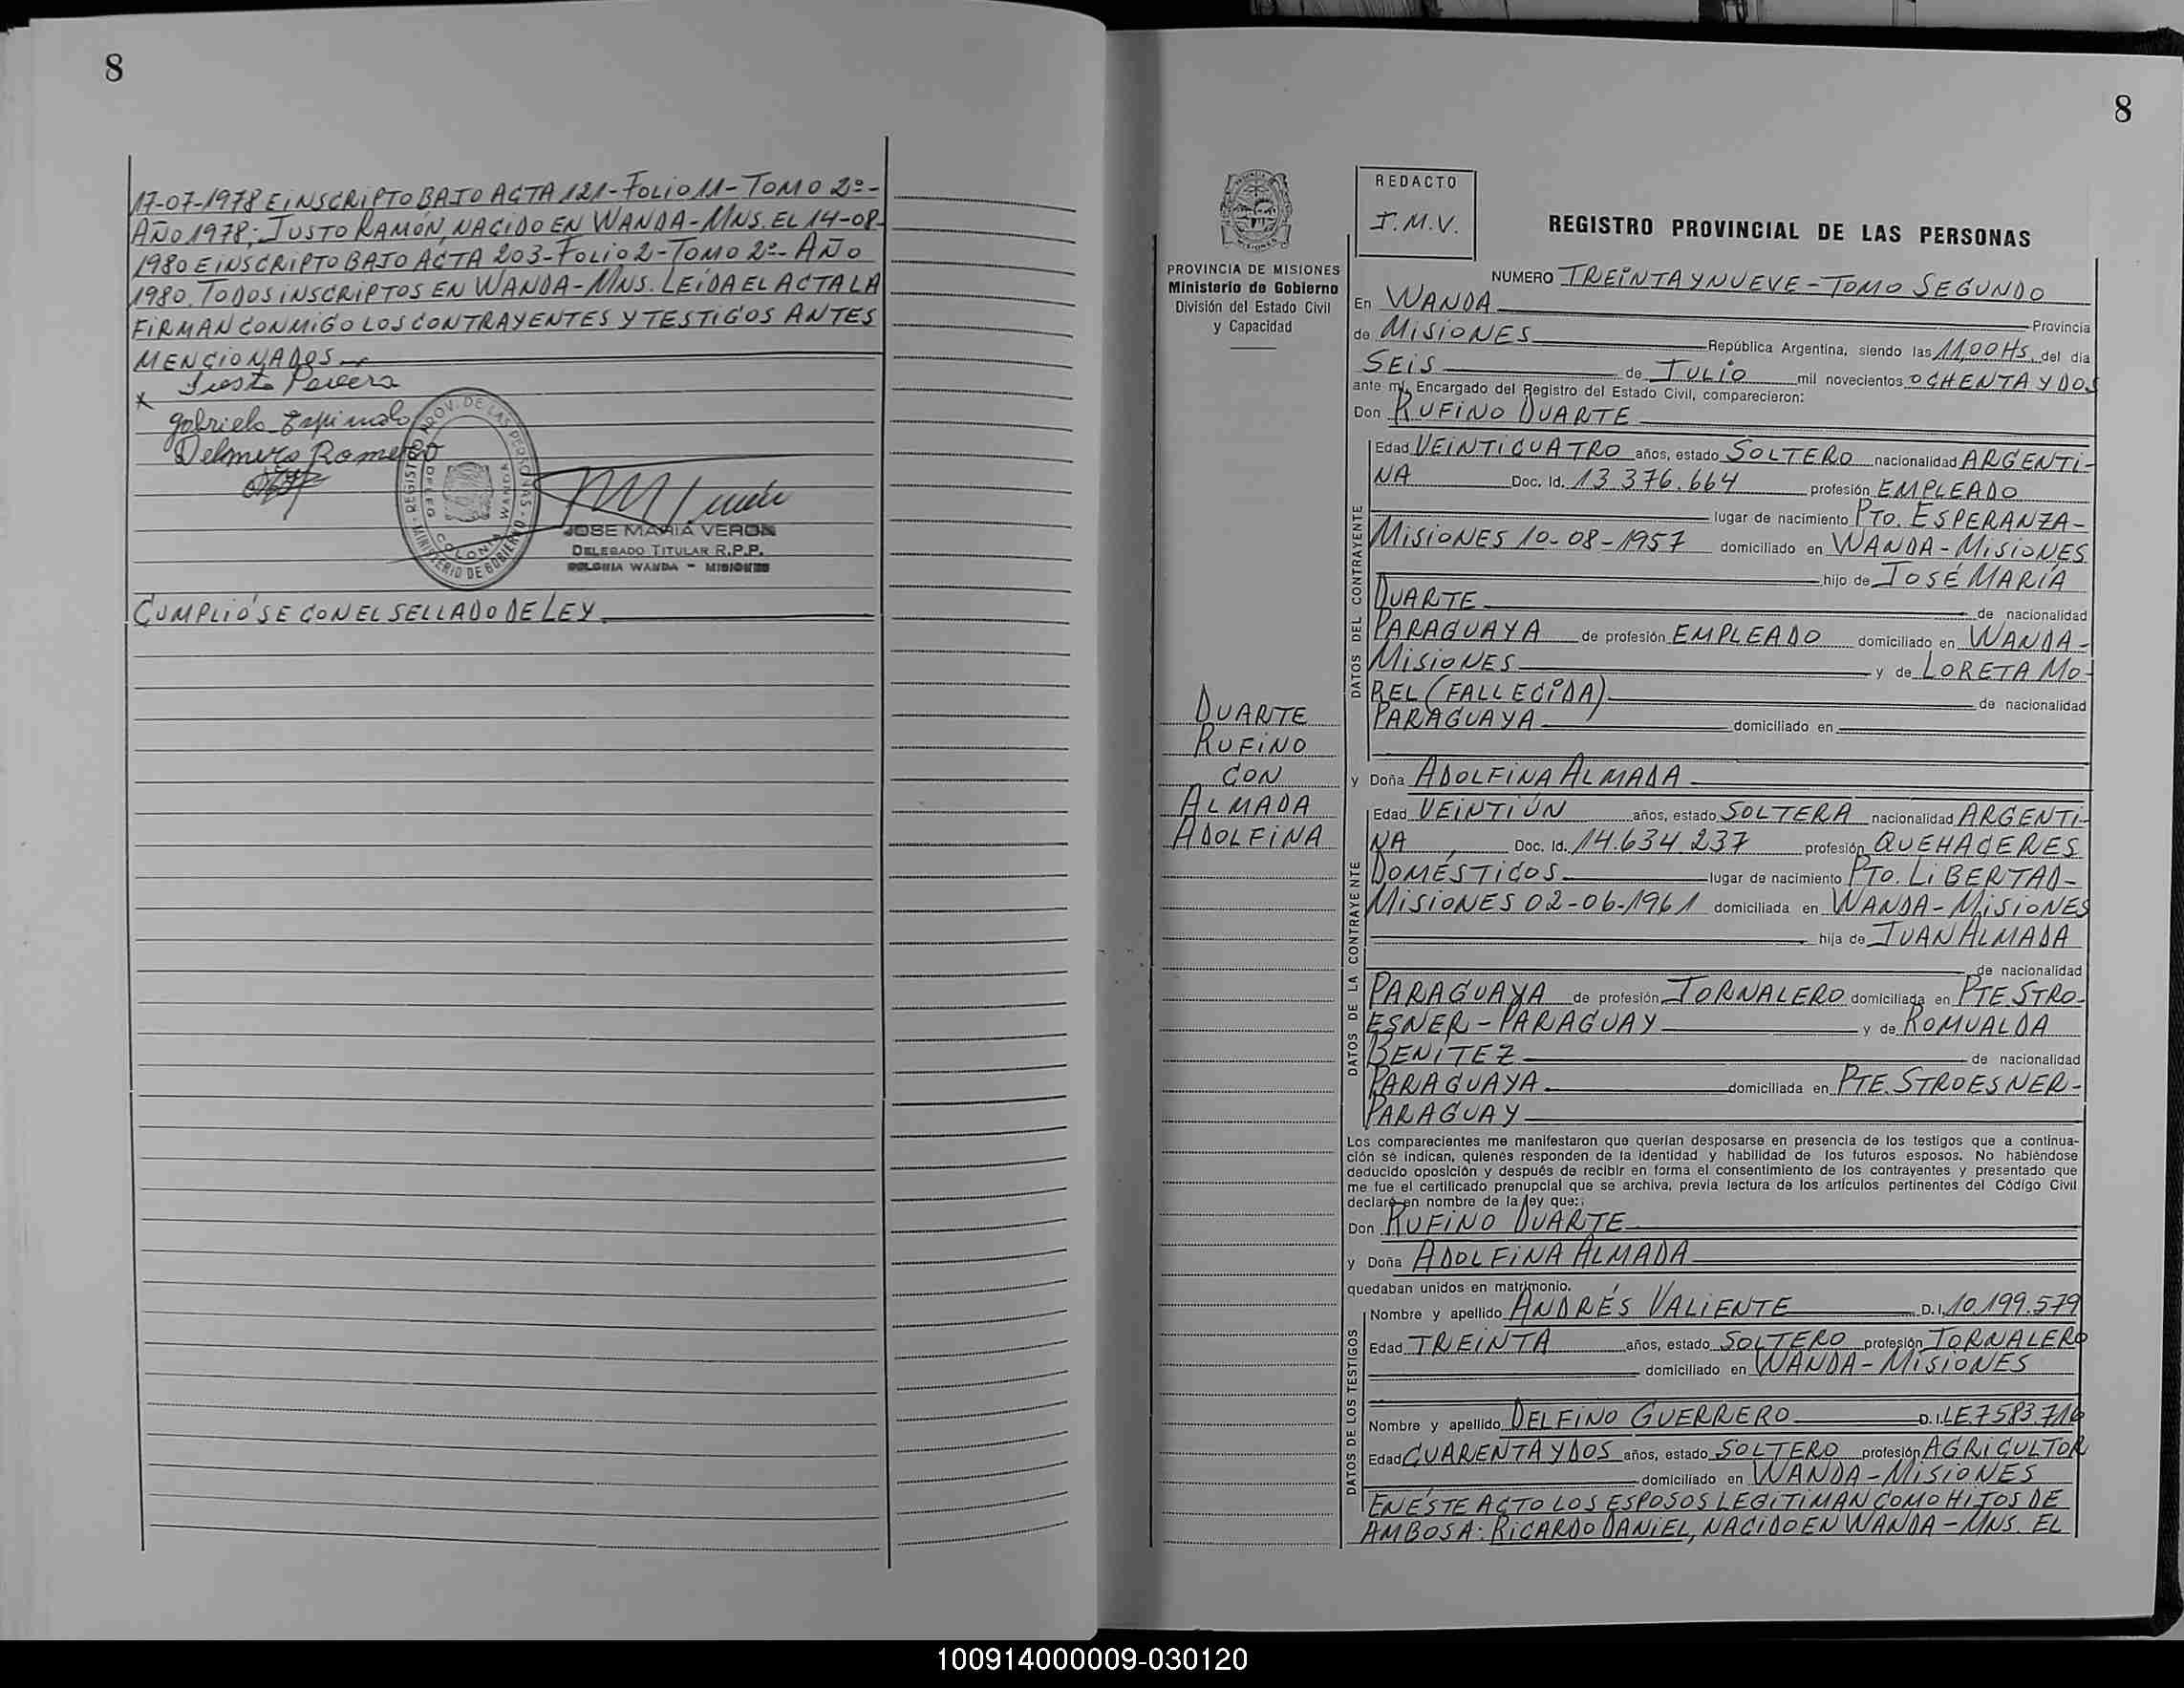 8
17-07-1978 E INSCRIPTO BAJO ACTA 121-FOLIO 11-TOMO 2º-
AÑO 1978; JUSTO RAMÓN, NACIDO EN WANDA-MNS. EL 14-08-
1980 E INSCRIPTO BAJO ACTA 203-FOLIO 2-TOMO 2º- AÑO
1980. TODOS INSCRIPTOS EN WANDA-MNS. LEÍDA EL ACTA LA
FIRMAN CONMIGO LOS CONTRAYENTES Y TESTIGOS ANTES
MENCIONADOS.
Justo
x
Gabriela Espinola
Delmiro Romero
REGISTRO PROV. DE LAS PERSONAS - MINISTERIO DE GOBIERNO
COLONIA WANDA
JOSE MARIA VERON
DELEGADO TITULAR R.P.P.
COLONIA WANDA - MISIONES
CUMPLIÓSE CON EL SELLADO DE LEY.
8
PROVINCIA DE MISIONES
Ministerio de Gobierno
División del Estado Civil
y Capacidad
REDACTO
J.M.V.
REGISTRO PROVINCIAL DE LAS PERSONAS
DUARTE
RUFINO
CON
ALMADA
ADOLFINA
NUMERO TREINTA Y NUEVE - TOMO SEGUNDO
En WANDA Provincia
de MISIONES República Argentina, siendo las 11,00 HS. del día
SEIS de JULIO mil novecientos OCHENTA Y DOS
ante mí, Encargado del Registro del Estado Civil, comparecieron:
Don RUFINO DUARTE
DATOS DEL CONTRAYENTE
Edad VEINTICUATRO años, estado SOLTERO nacionalidad ARGENTI-
NA Doc. Id. 13.376.664 profesión EMPLEADO
lugar de nacimiento PTO. ESPERANZA-
MISIONES 10-08-1957 domiciliado en WANDA-MISIONES
hijo de JOSÉ MARÍA
DUARTE de nacionalidad
PARAGUAYA de profesión EMPLEADO domiciliado en WANDA-
MISIONES y de LORETA MO-
REL (FALLECIDA) de nacionalidad
PARAGUAYA domiciliado en
y Doña ADOLFINA ALMADA
DATOS DE LA CONTRAYENTE
Edad VEINTIÚN años, estado SOLTERA nacionalidad ARGENTI-
NA Doc. Id. 14.634.237 profesión QUEHACERES
DOMÉSTICOS lugar de nacimiento PTO. LIBERTAD-
MISIONES 02-06-1961 domiciliada en WANDA-MISIONES
hija de JUAN ALMADA
de nacionalidad
PARAGUAYA de profesión JORNALERO domiciliada en PTE. STRO-
ESNER-PARAGUAY y de ROMUALDA
BENÍTEZ de nacionalidad
PARAGUAYA domiciliada en PTE. STROESNER-
PARAGUAY
Los comparecientes me manifestaron que querían desposarse en presencia de los testigos que a continua-
ción se indican, quienes responden de la identidad y habilidad de los futuros esposos. No habiéndose
deducido oposición y después de recibir en forma el consentimiento de los contrayentes y presentado que
me fue el certificado prenupcial que se archiva, previa lectura de los artículos pertinentes del Código Civil
declaré en nombre de la ley que:
Don RUFINO DUARTE
y Doña ADOLFINA ALMADA
quedaban unidos en matrimonio.
DATOS DE LOS TESTIGOS
Nombre y apellido ANDRÉS VALIENTE D.I. 10.199.579
Edad TREINTA años, estado SOLTERO profesión JORNALERO
domiciliado en WANDA-MISIONES
Nombre y apellido DELFINO GUERRERO D.I. LE 7583.716
Edad CUARENTA Y DOS años, estado SOLTERO profesión AGRICULTOR
domiciliado en WANDA-MISIONES
EN ÉSTE ACTO LOS ESPOSOS LEGITIMAN COMO HIJOS DE
AMBOS A: RICARDO DANIEL, NACIDO EN WANDA-MNS. EL
100914000009-030120